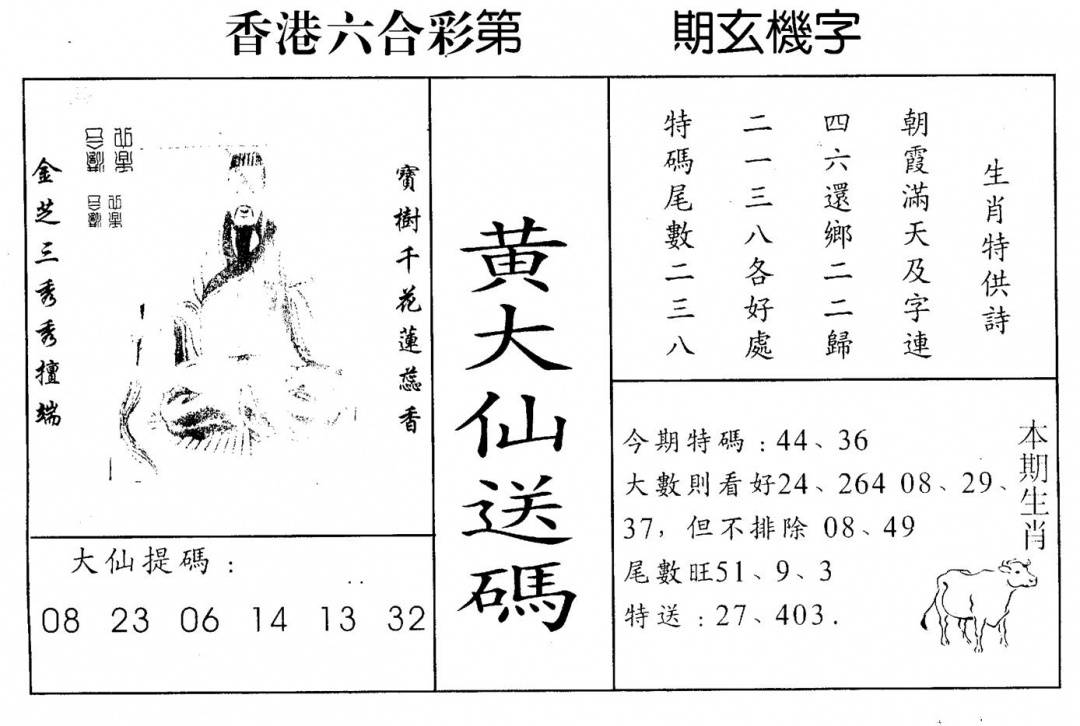 香港六合彩第 期玄機字
寶樹千花蓮蕊香
金芝三秀秀擅端
大仙提碼：
08 23 06 14 13 32
黃大仙送碼
生肖特供詩
朝霞滿天及字連
四六還鄉二二歸
二一三八各好處
特碼尾數二三八
今期特碼：44、36
大數則看好24、264 08、29、
37，但不排除 08、49
尾數旺51、9、3
特送：27、403.
本期生肖